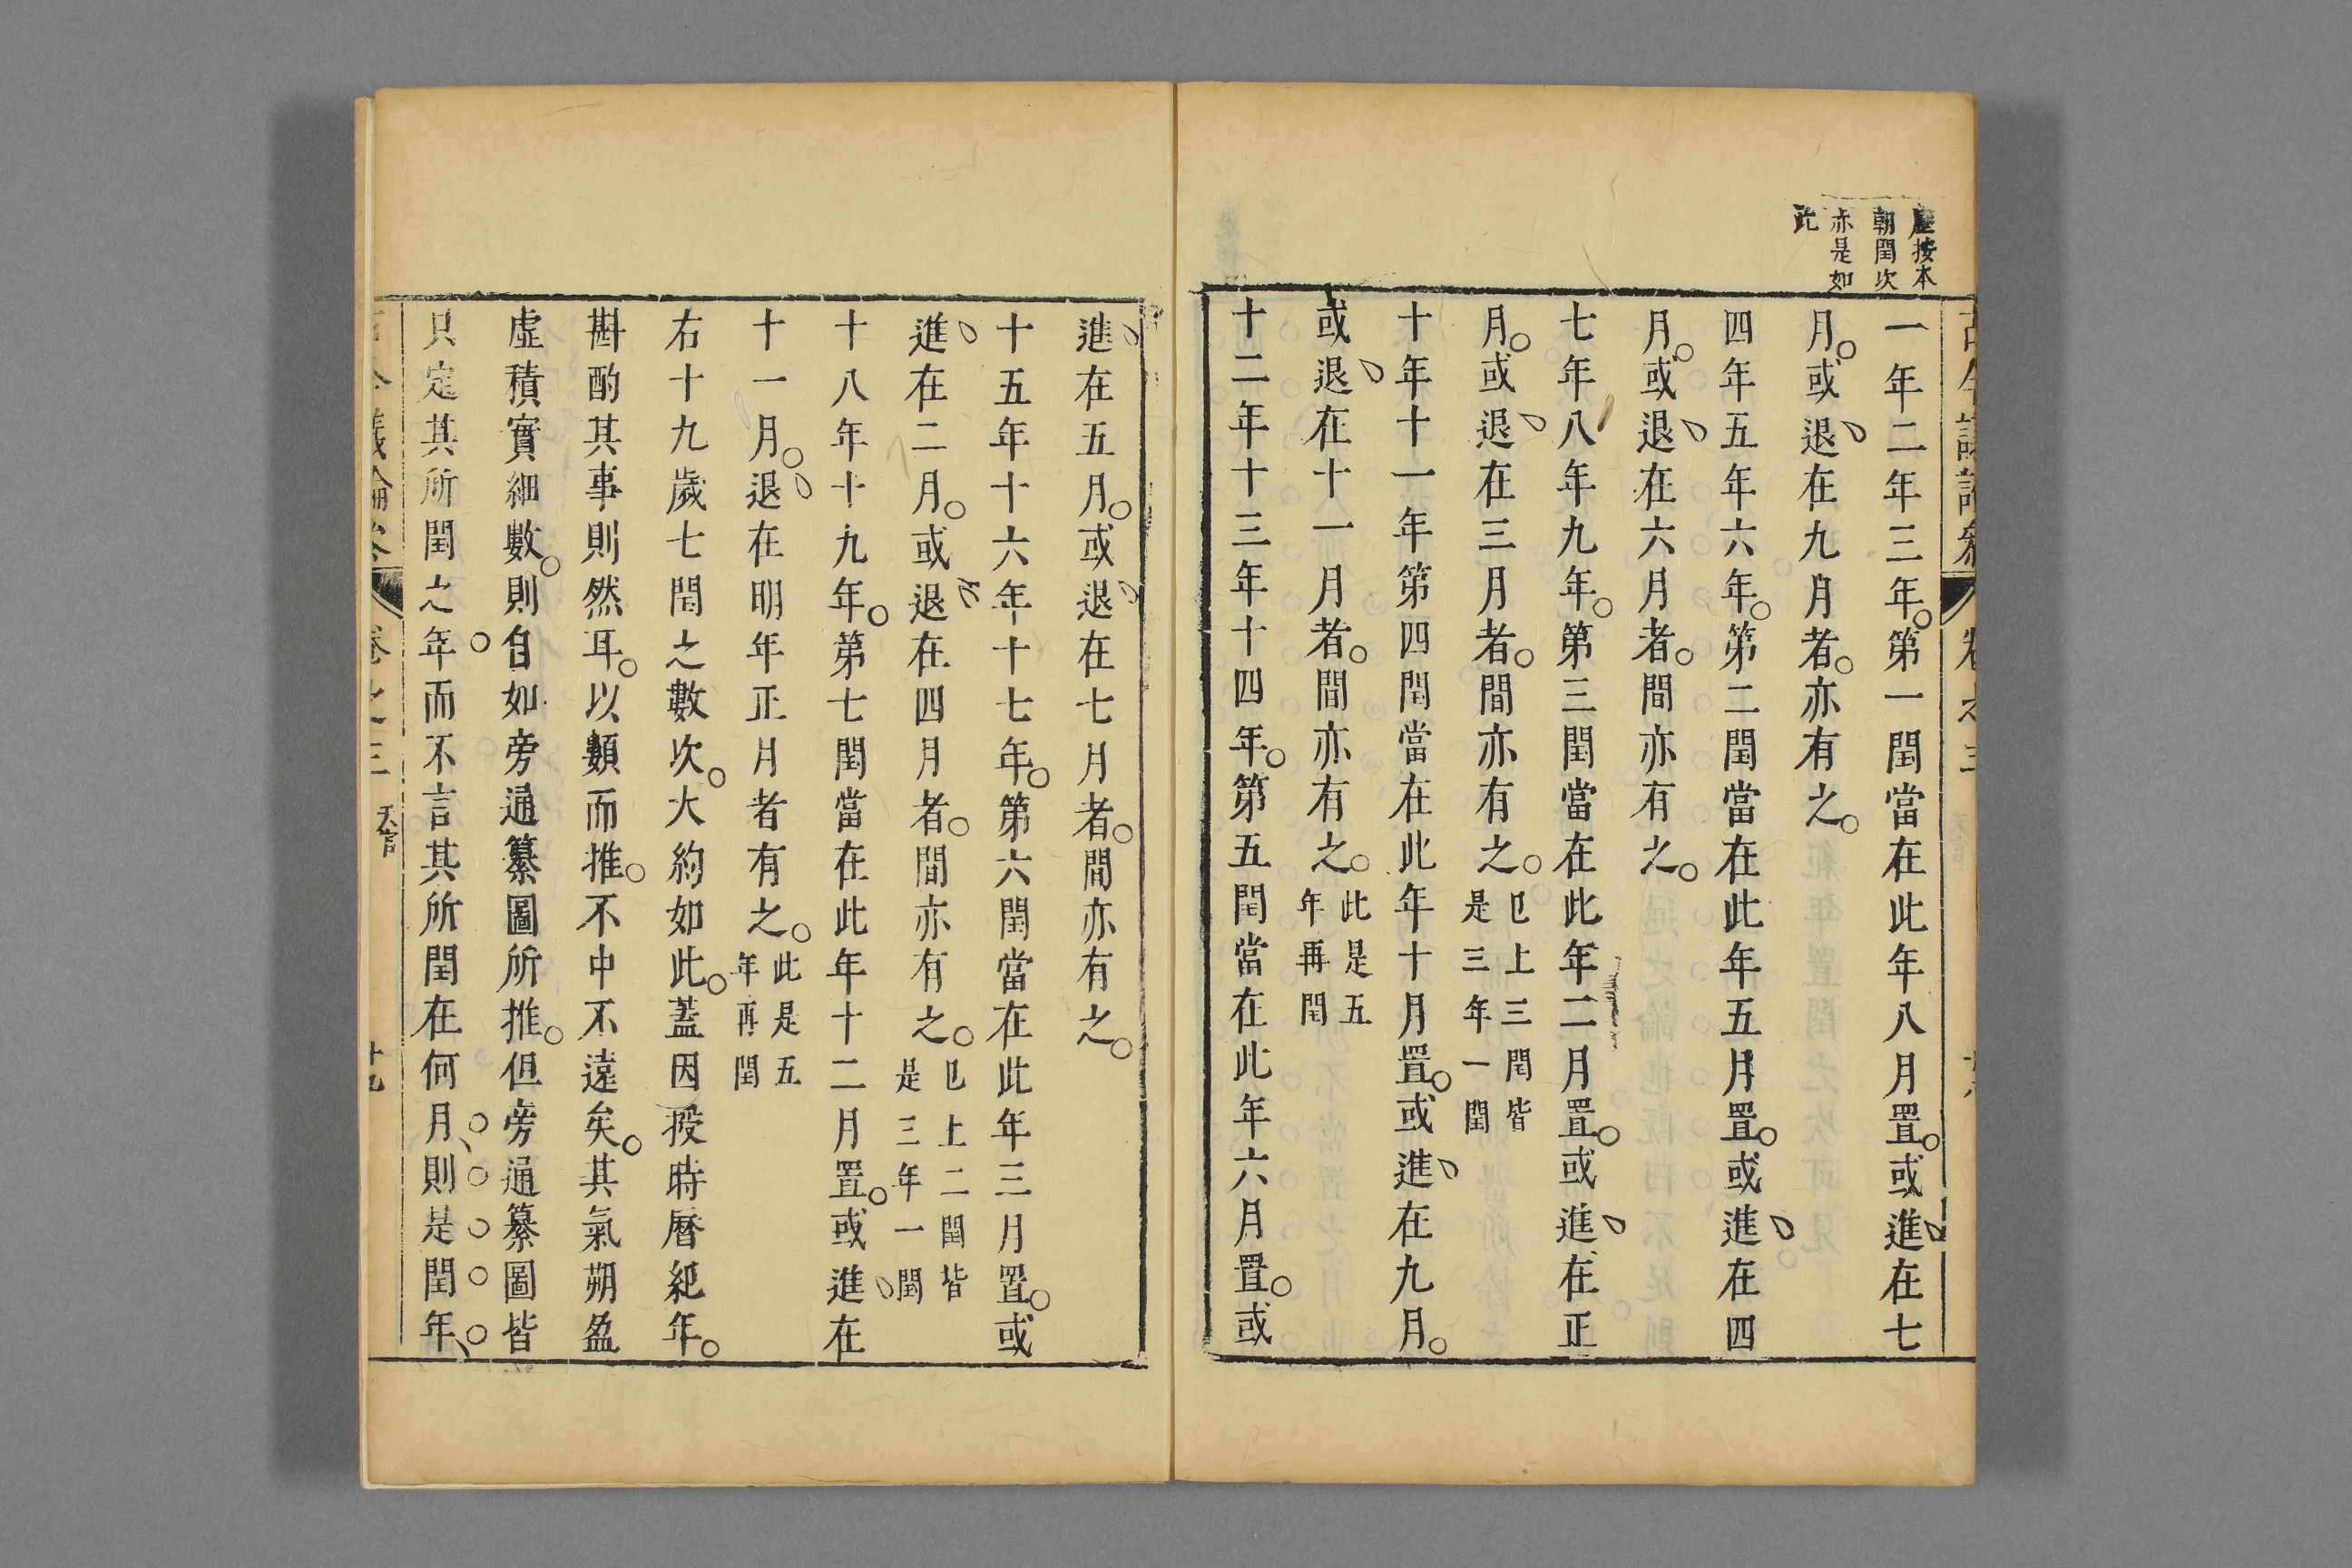 按本
朝閏次
亦是如
此
一年二年三年。第一閏當在此年八月置。或進在七
月。或退在九月者。亦有之。
四年五年六年。第二閏當在此年五月置。或進在四
月。或退在六月者。間亦有之。
七年八年九年。第三閏當在此年二月置。或進在正
月。或退在三月者。間亦有之。
已上三閏皆
是三年一閏
十年十一年第四閏當在此年十月置。或進在九月。
或退在十一月者。間亦有之。
此是五
年再閏
十二年十三年十四年。第五閏當在此年六月置。或
進在五月。或退在七月者。間亦有之。
十五年十六年十七年。第六閏當在此年三月置。或
進在二月。或退在四月者。間亦有之。
已上二閏皆
是三年一閏
十八年十九年。第七閏當在此年十二月置。或進在
十一月。退在明年正月者有之。
此是五
年再閏
右十九歲七閏之數次。大約如此。蓋因授時曆紀年。
斟酌其事則然耳。以類而推。不中不遠矣。其氣朔盈
虛積實細數。則自如旁通纂圖所推。但旁通纂圖皆
只定其所閏之年。而不言其所閏在何月、則是閏年、
卷之三
天官
十九